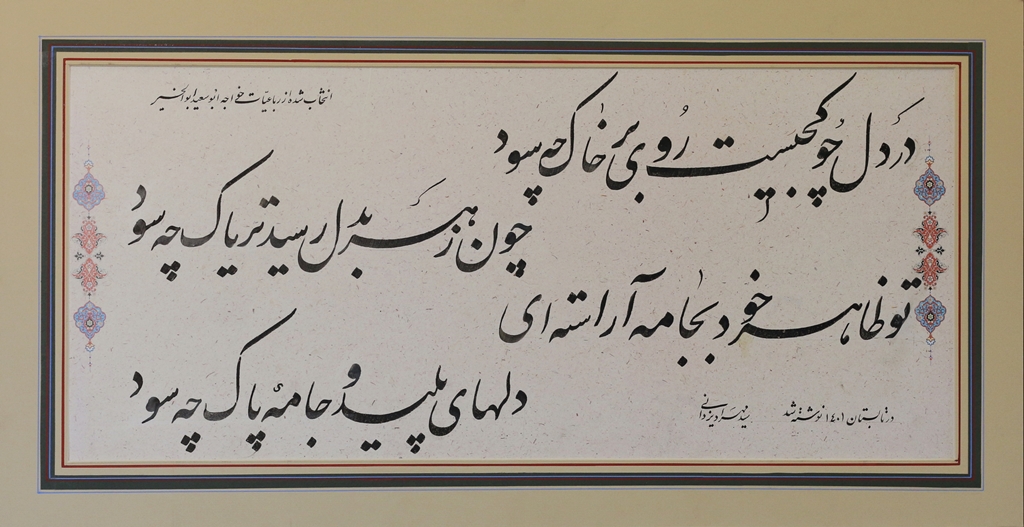 انتخاب شده از رباعیات خواجه ابوسعید ابوالخیر
در دل چو کجیست روی بر خاک چه سود
چون زهر بدل رسید تریاک چه سود
تو ظاهر خود بجامه آراسته ای
دلهای پلید و جامهٔ پاک چه سود
در تابستان ۱۴۰۱ نوشته شد
یزدانی